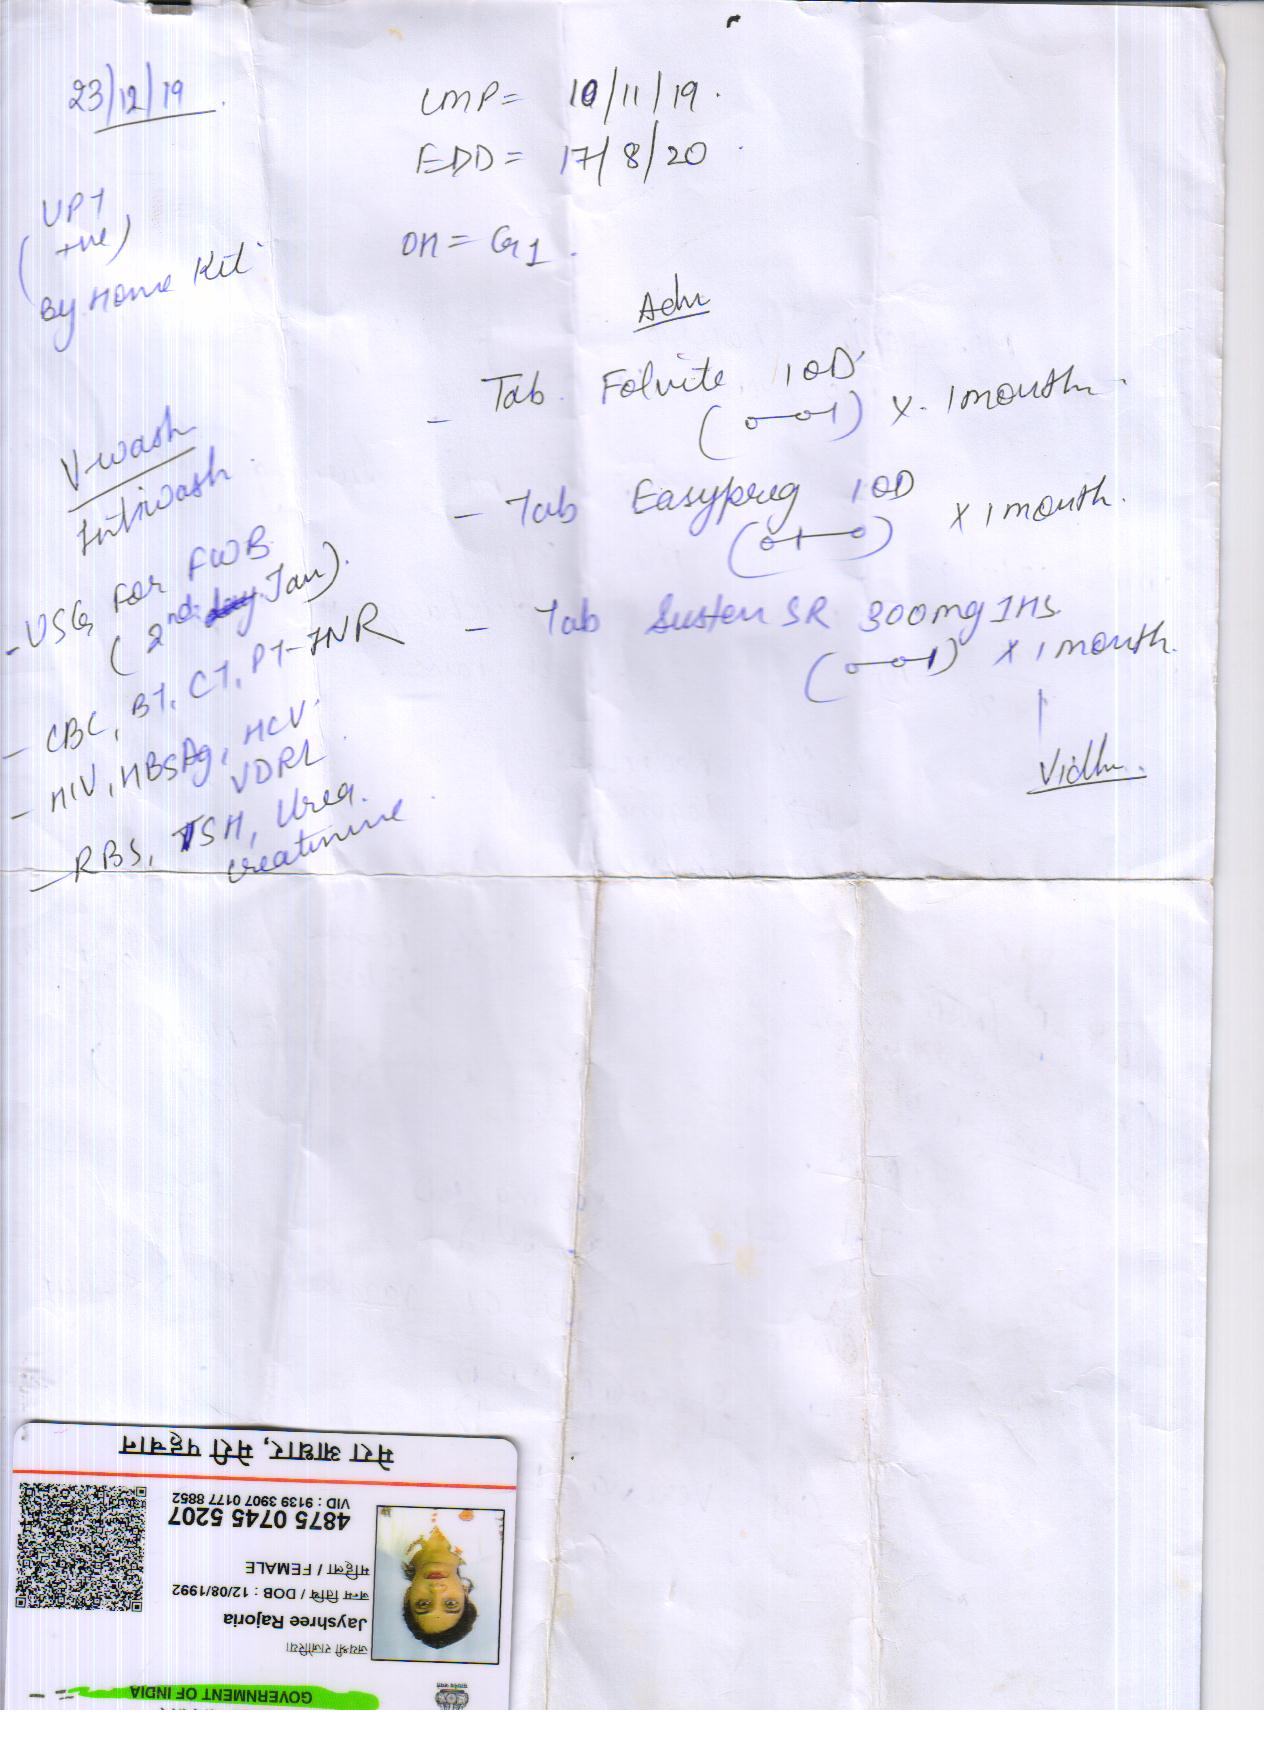 23/12/19
LMP = 10/11/19
EDD = 17/8/20
UPT
(+ve)
By Home Kit
OH = G1
Adv
- Tab. Folvite 1 OD
(0—0—1) x 1 month
- Tab Easypreg 1 OD
(0—1—0) x 1 month
- Tab Susten SR 300mg 1 HS
(0—0—1) x 1 month
Vidhu
V-wash
Intiwash
- USG For FWB
(2nd Jan)
- CBC, BT, CT, PT-INR
- HIV, HBSAg, HCV
VDRL
- RBS, TSH, Urea
creatinine
GOVERNMENT OF INDIA
जयश्री राजोरिया
Jayshree Rajoria
जन्म तिथि / DOB : 12/08/1992
महिला / FEMALE
4875 0745 5207
VID : 9139 3907 0177 8852
मेरा आधार, मेरी पहचान